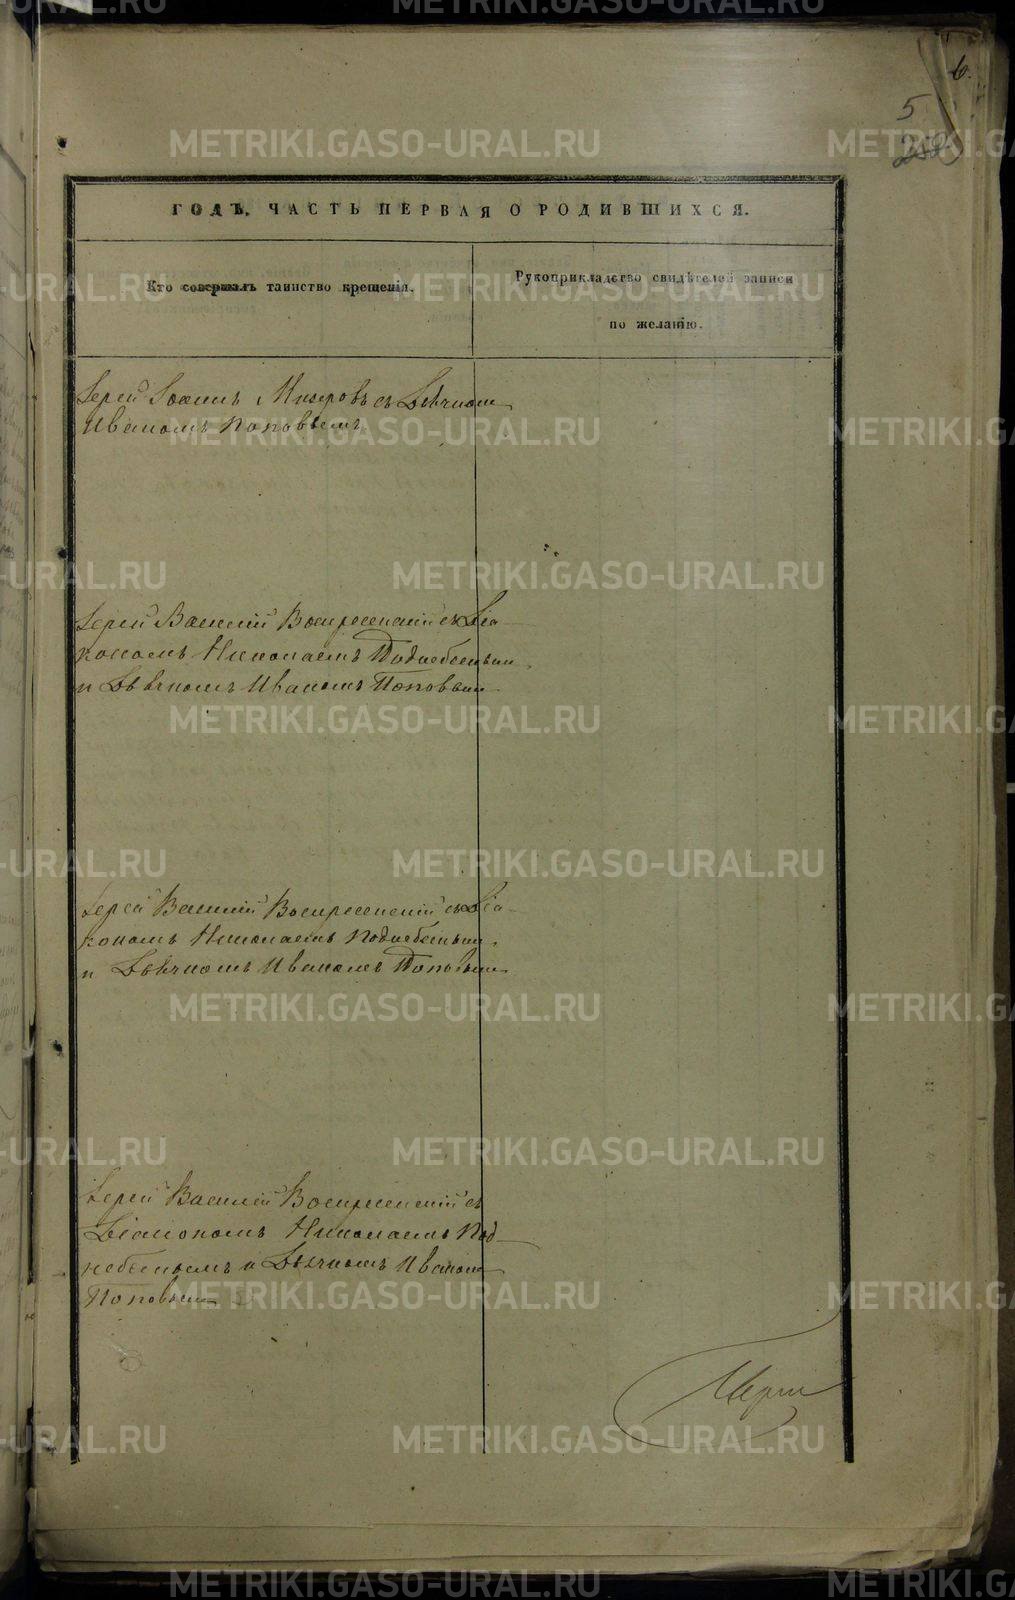 6.
5
258
ГОДЪ. ЧАСТЬ ПЕРВАЯ О РОДИВШИХСЯ.
Кто совершалъ таинство крещенія.
Рукоприкладство свидѣтелей записи
по желанію.
Іерей Іоаннъ Мизеровъ съ Дьячкомъ
Иваномъ Поповымъ.
Іерей Василій Воскресенскій съ Діа-
кономъ Николаемъ Поднебеснымъ
и Дьячкомъ Иваномъ Поповымъ
Іерей Василій Воскресенскій съ Діа-
кономъ Николаемъ Поднебеснымъ
и Дьячкомъ Иваномъ Поповымъ
Іерей Василій Воскресенскій съ
Діакономъ Николаемъ Под-
небеснымъ и Дьячкомъ Иваномъ
Поповымъ
METRIKI.GASO-URAL.RU